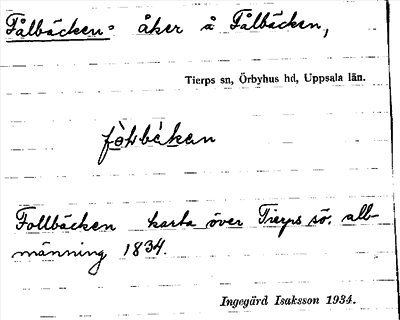 Fålbäcken: åker å Fålbäcken,
Tierps sn, Örbyhus hd, Uppsala län.
Follbäcken karta över Tierps sö. all-
männing 1834.
Ingegärd Isaksson 1934.